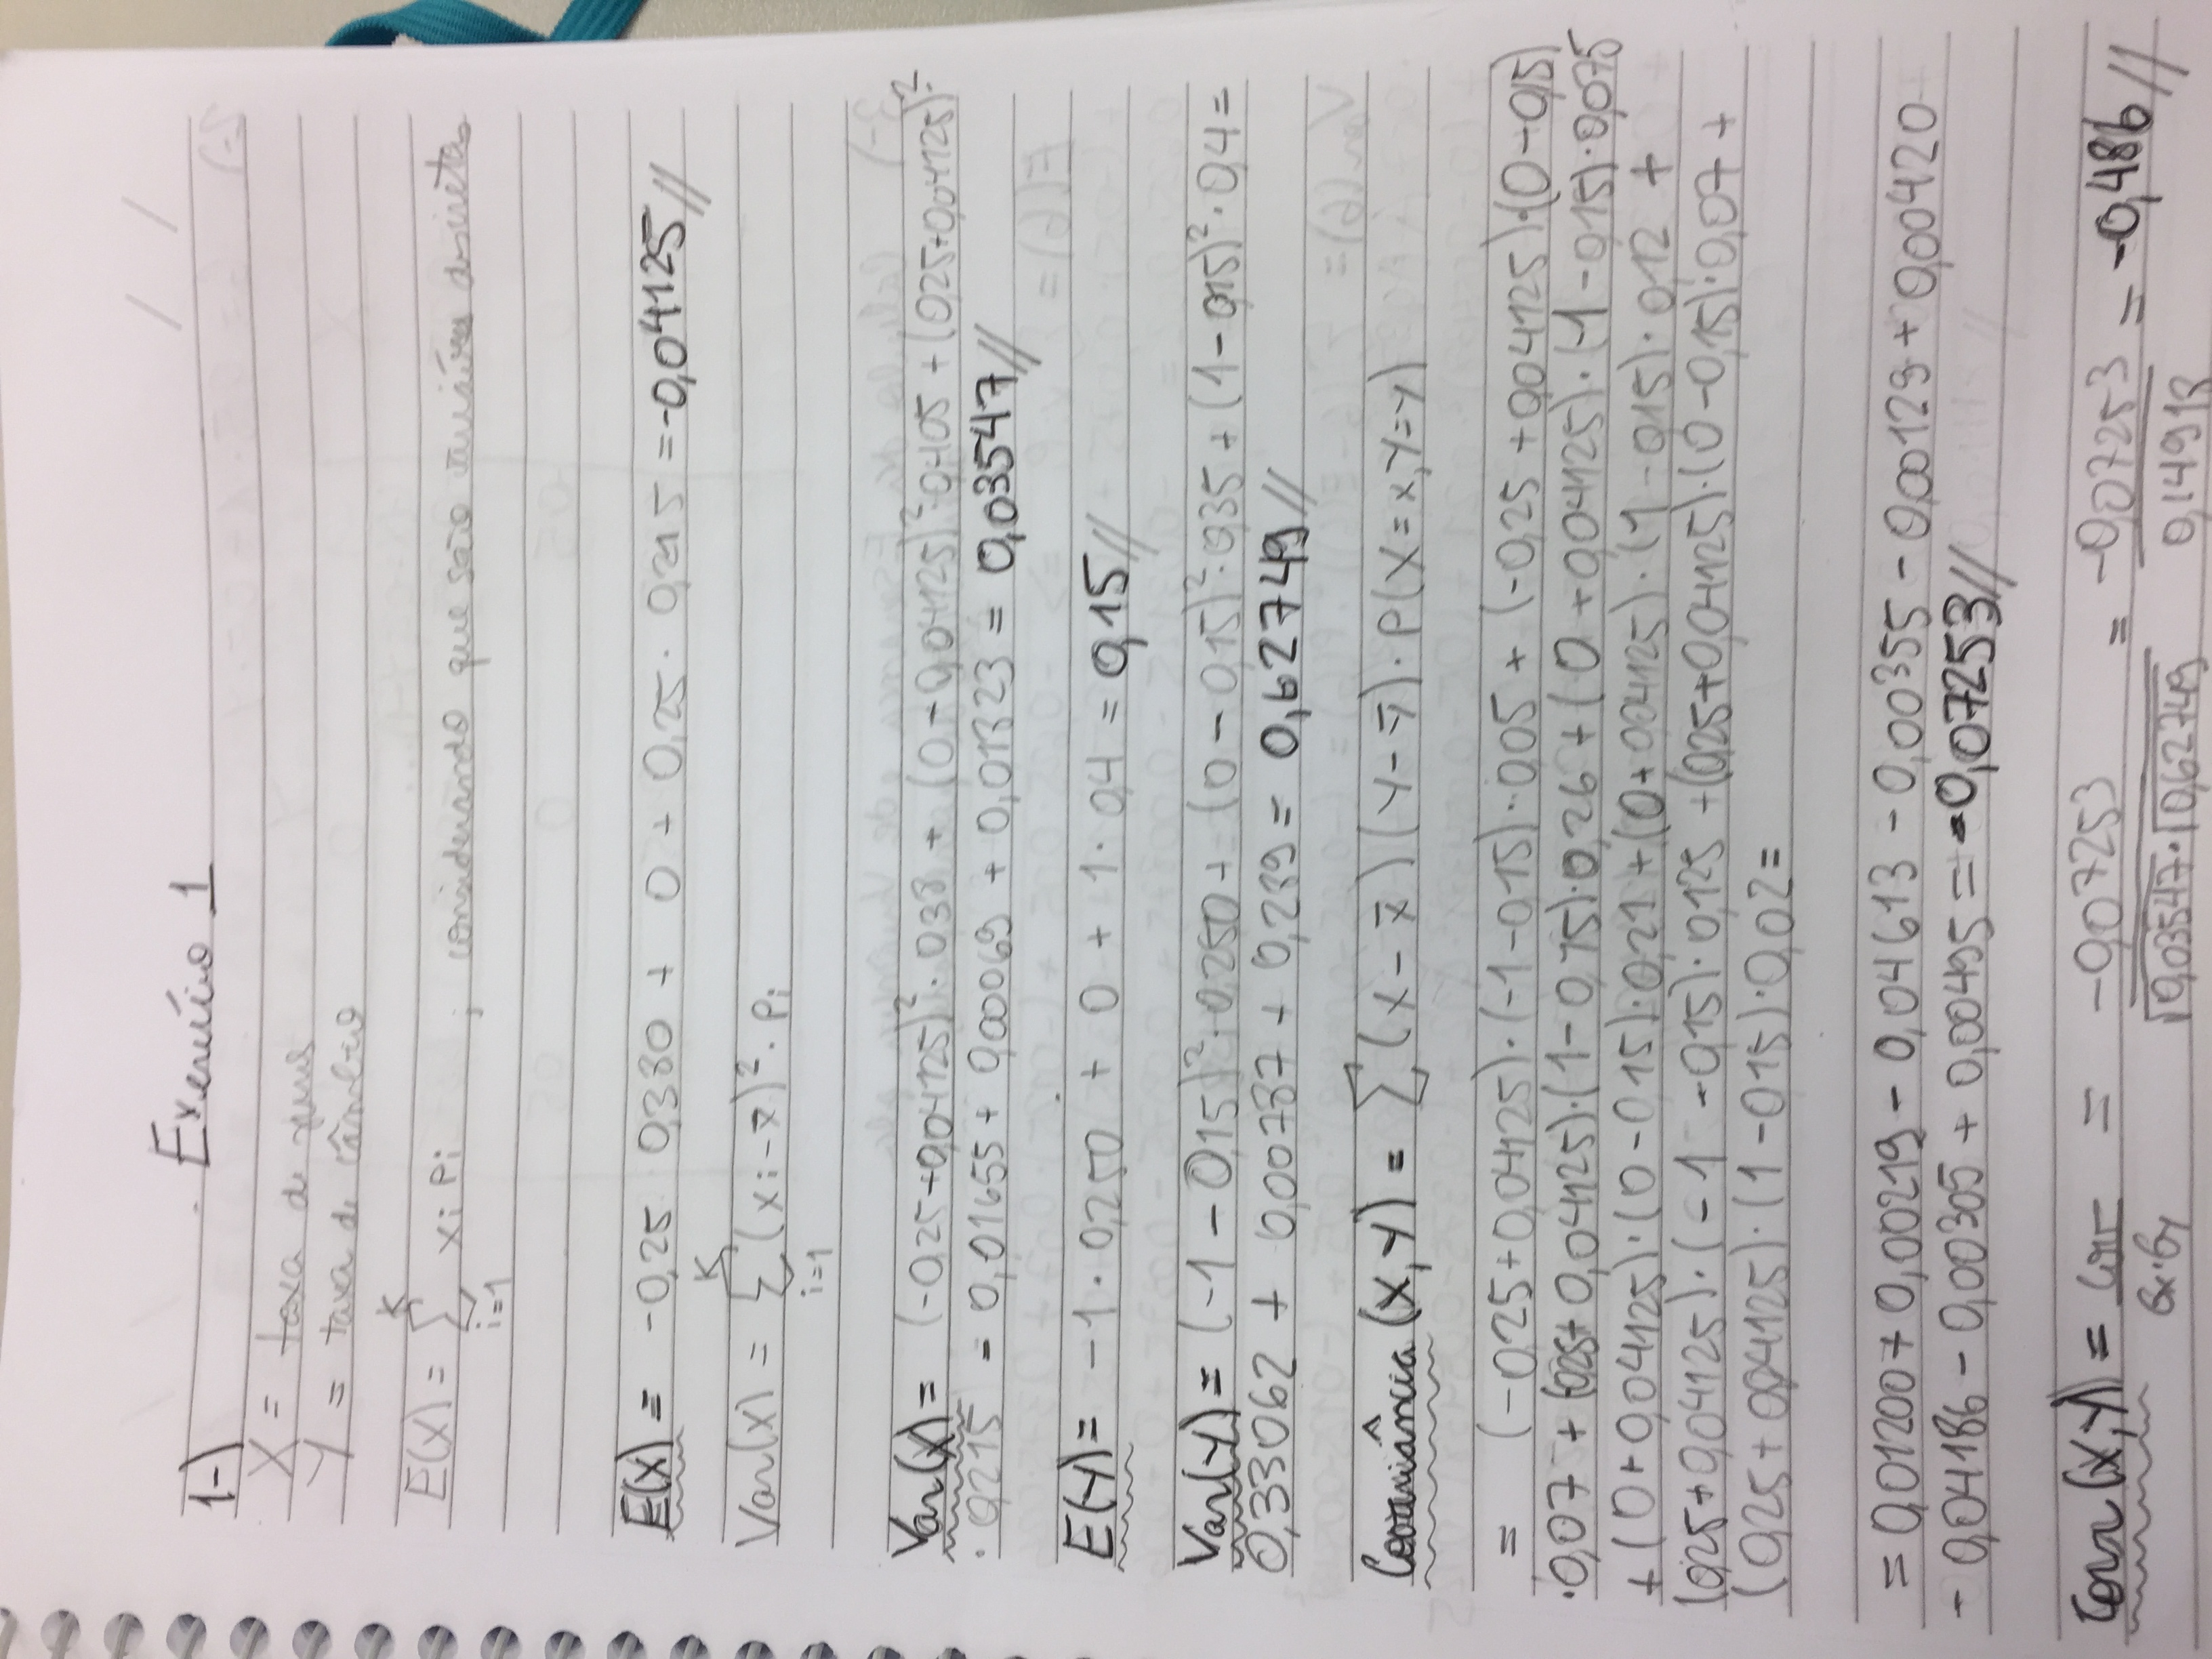 Exercício 1
1-)
X = taxa de juros
Y = taxa de câmbio
E(X) = K Σ i=1 xi Pi ; considerando que são variáveis discretas
E(X) = -0,25 0,380 + 0 + 0,25 · 0,215 = -0,04125//
Var(X) = K Σ i=1 (xi - x̄)² · Pi
Var(X) = (-0,25+0,04125)² · 0,38 + (0-0,04125)² · 0,405 + (0,25+0,04125)² ·
· 0,215 = 0,01655 + 0,00069 + 0,01823 = 0,03547//
E(Y) = -1 · 0,250 + 0 + 1 · 0,4 = 0,15//
Var(Y) = (-1 - 0,15)² · 0,250 + (0 - 0,15)² · 0,35 + (1-0,15)² · 0,4 =
0,33062 + 0,00787 + 0,289 = 0,62749//
Covariância (X,Y) = Σ (X - x̄) (Y - ȳ) · P(X=x,Y=y)
= (-0,25+0,04125) · (-1-0,15) · 0,05 + (-0,25+0,04125) · (0-0,15)
· 0,07 + (-0,25+0,04125) · (1-0,15) · 0,26 + (0+0,04125) · (-1-0,15) · 0,075
+ (0+0,04125) · (0-0,15) · 0,21 + (0+0,04125) · (1-0,15) · 0,12 +
(0,25+0,04125) · (-1-0,15) · 0,125 + (0,25+0,04125) · (0-0,15) · 0,07 +
(0,25+0,04125) · (1-0,15) · 0,02 =
= 0,01200 + 0,00219 - 0,04613 - 0,00355 - 0,00129 + 0,00420
- 0,04186 - 0,00305 + 0,00495 = -0,07253//
Corr(X,Y) = Cov / σx·σy = -0,07253 / √0,03547 · √0,62749 = -0,07253 / 0,14918 = -0,486//